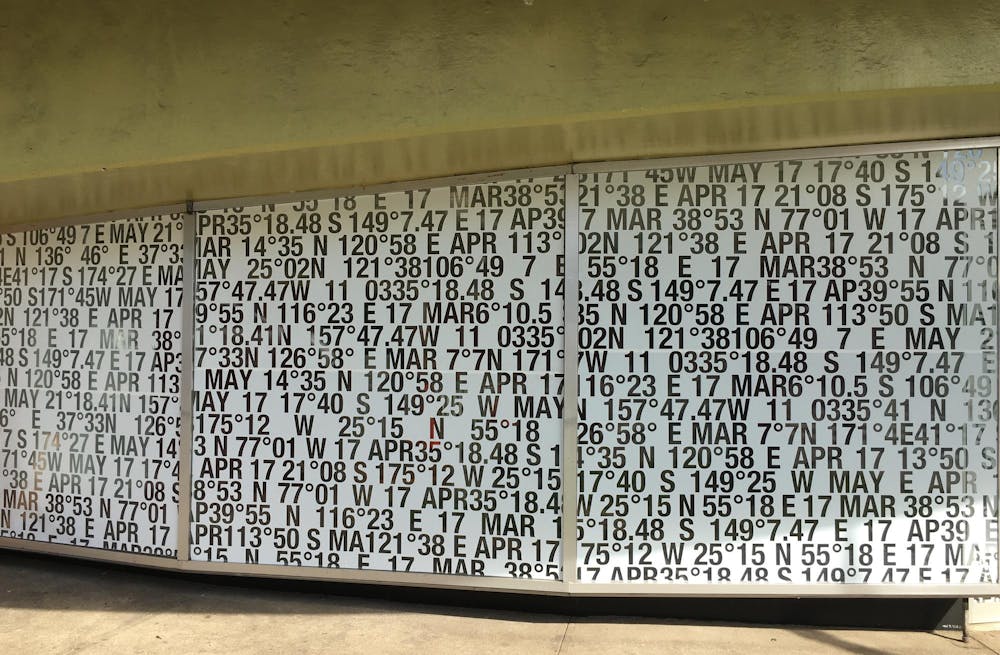 S 106°49 7 E MAY 21°
1 N 136° 46° E 37°33
4E41°17 S 174°27 E MA
°50 S171°45W MAY 17
2N 121°38 E APR 17
5°18 E 17 MAR 38°
48 S 149°7.47 E 17 AP3
N 120°58 E APR 113
MAY 21°18.41N 157°
6° E 37°33N 126°5
7 S 174°27 E MAY 14
71°45W MAY 17 17°4
°38 E APR 17 21°08 S
MAR 38°53 N 77°01
N 121°38 E APR 17
N 55°18 E 17 MAR38°53
APR35°18.48 S 149°7.47 E 17 AP39
MAR 14°35 N 120°58 E APR 113°
MAY 25°02N 121°38106°49 7 E
57°47.47W 11 0335°18.48 S 14
9°55 N 116°23 E 17 MAR6°10.5
1°18.41N 157°47.47W 11 0335°
7°33N 126°58° E MAR 7°7N 171°
MAY 14°35 N 120°58 E APR 17
17 17°40 S 149°25 W MAY
175°12 W 25°15 N 55°18
3 N 77°01 W 17 APR35°18.48 S 1
APR 17 21°08 S 175°12 W 25°15
8°53 N 77°01 W 17 APR35°18.4
AP39°55 N 116°23 E 17 MAR 1
PR113°50 S MA121°38 E APR 17
°15 N 55°18 E 17 MAR 38°5
171°45W MAY 17 17°40 S 14
21°38 E APR 17 21°08 S 175°12 W
7 MAR 38°53 N 77°01 W 17 APR1
02N 121°38 E APR 17 21°08 S 1
55°18 E 17 MAR38°53 N 77°0
8.48 S 149°7.47 E 17 AP39°55 N 11
35 N 120°58 E APR 113°50 S MA1
02N 121°38106°49 7 E MAY 2
7W 11 0335°18.48 S 149°7.47 E
116°23 E 17 MAR6°10.5 S 106°49
N 157°47.47W 11 0335°41 N 13
26°58° E MAR 7°7N 171°4E41°17
35 N 120°58 E APR 17 13°50 S
17°40 S 149°25 W MAY E APR
W 25°15 N 55°18 E 17 MAR 38°53 N
5°18.48 S 149°7.47 E 17 AP39
175°12 W 25°15 N 55°18 E 17 MA
17 APR35°18.48 S 149°7.47 E 17 A